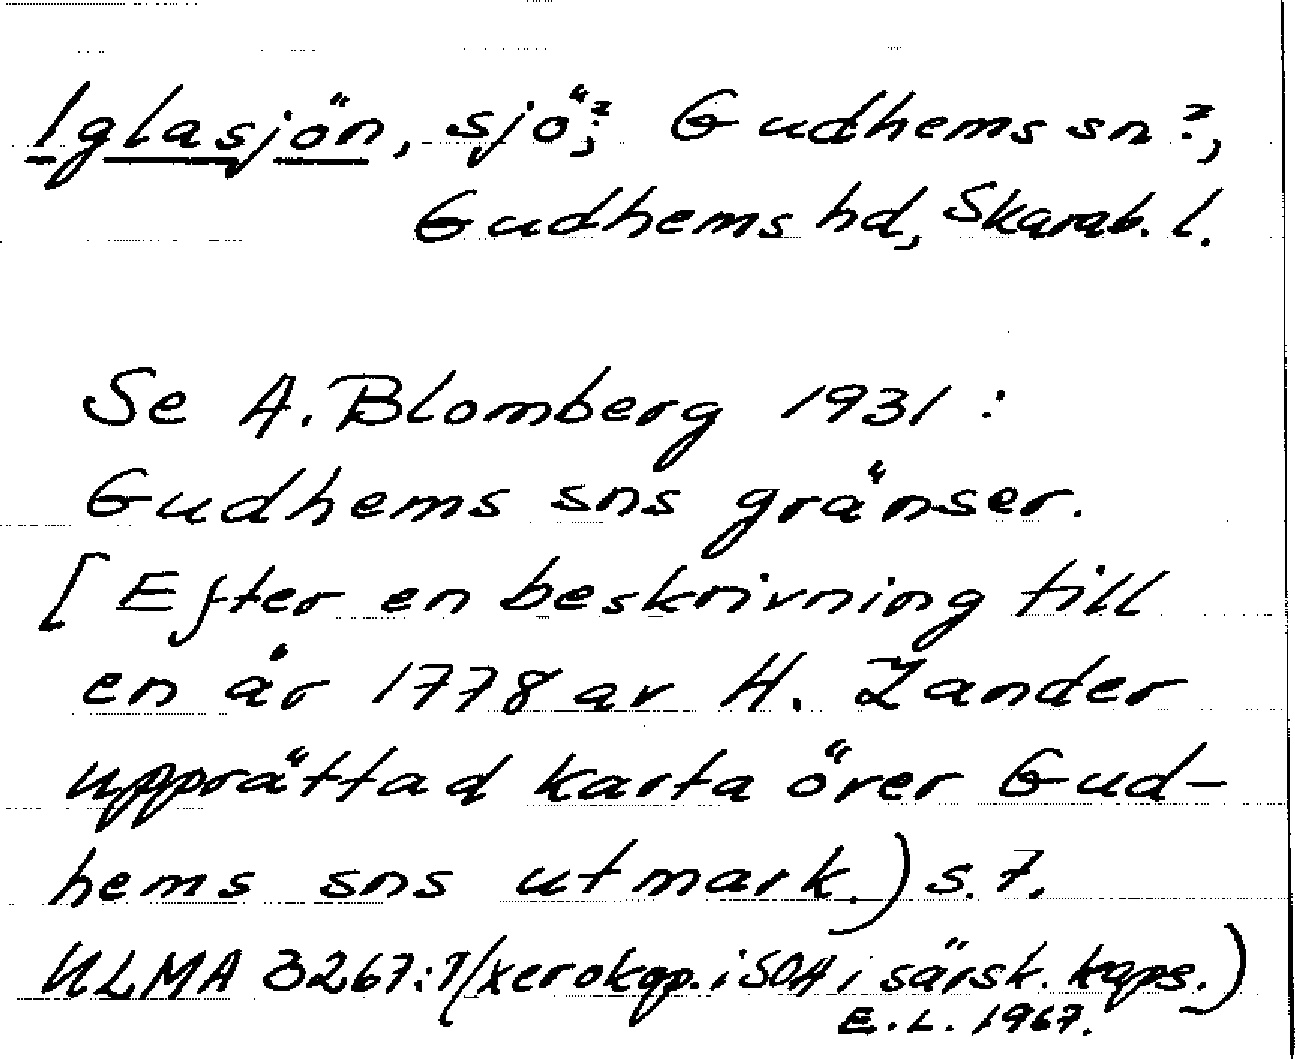 Iglasjön, sjö?; Gudhems sn?,
Gudhems hd, Skarab. l.
Se A. Blomberg 1931:
Gudhems sns gränser.
[Efter en beskrivning till
en år 1778 av H. Zander
upprättad karta över Gud-
hems sns utmark.) s. 7.
ULMA 3267:7 (xerokop. i SOA i särsk. kaps.)
E. L. 1967.